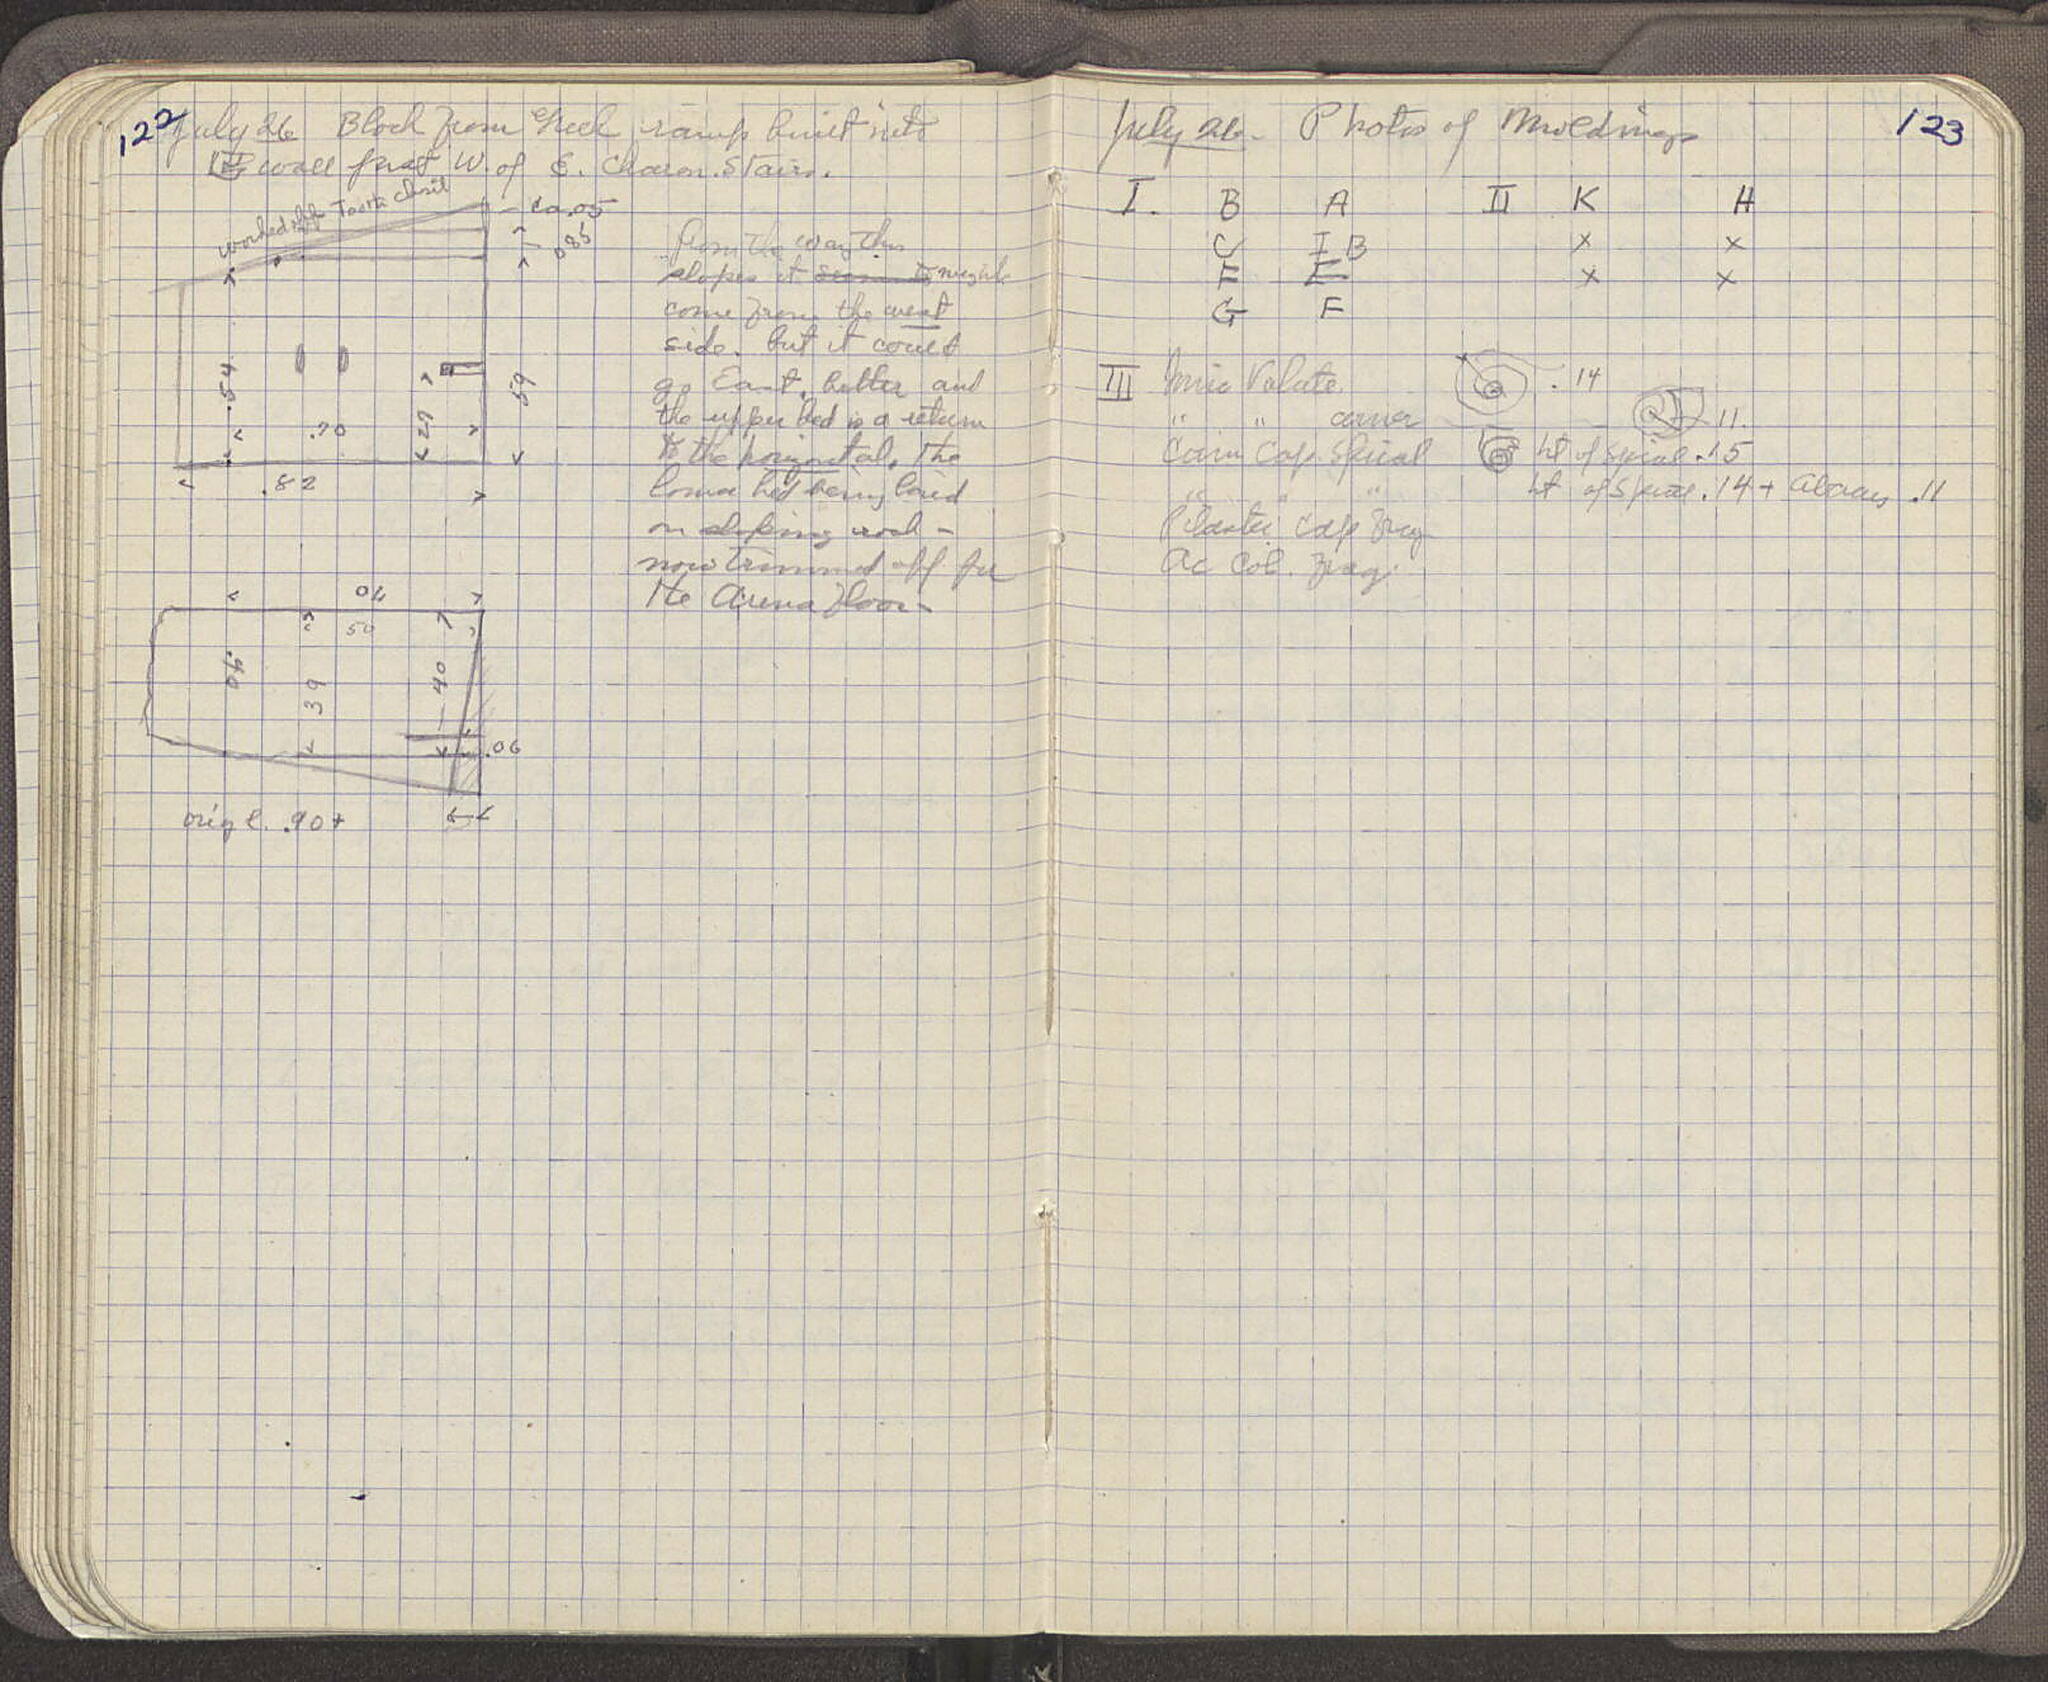 122
July 26 Block from Greek ramp built into
wall just W. of E. Charon. Stairs.
worked off Tooth chisel
ca .05
.085
.54
.59
.70
.29
.82
From the way this
slopes it seems to might
come from the west
side. but it could
go East, better and
the upper bed is a return
to the horizontal. The
lower bed being laid
on sloping rock –
now trimmed off for
the Arena floor –
.70
.50
.40
.39
.40
.06
orig l. .90+
123
July 26. Photos of Mouldings
I. B A II K H
C I B x x
E E x x
G F
III Ionic Volute .14
" " corner .11
Corin Cap. Spiral ht of Spiral .15
" " " ht of Spiral .14 + Abacus .11
Pilaster Cap frag
Ac Col. frag.